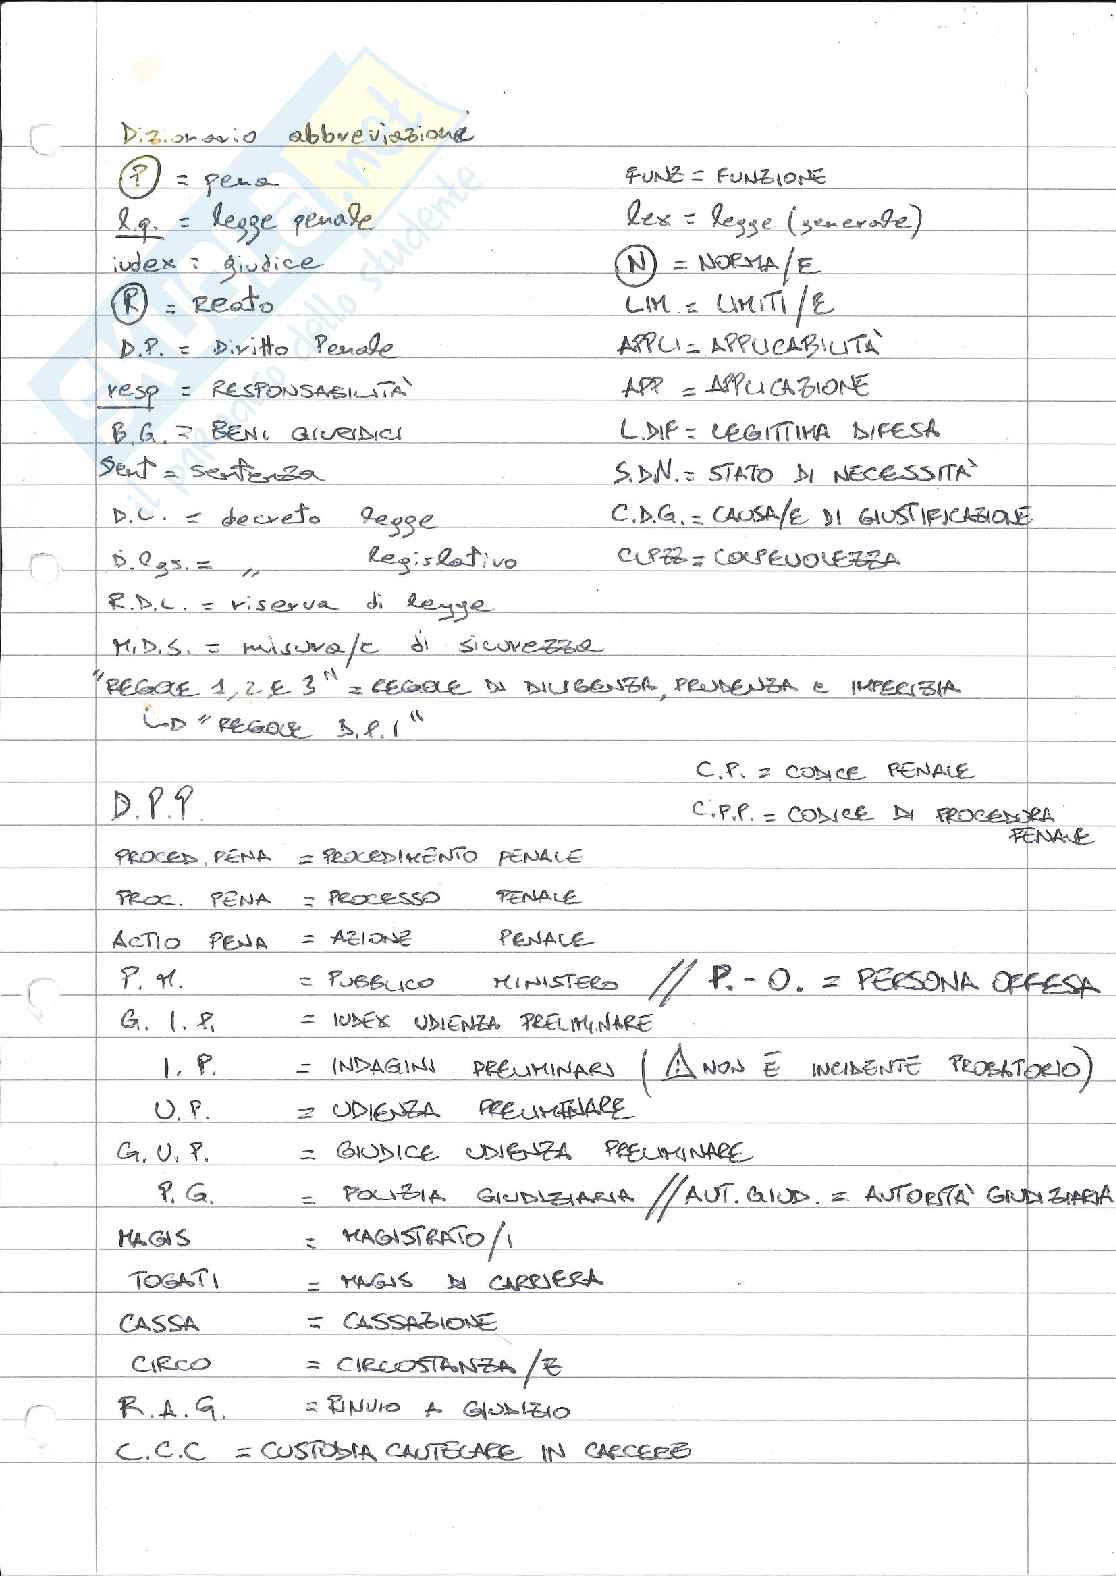 Dizionario abbreviazione
P = pena
FUNZ = FUNZIONE
l.p. = legge penale
lex = legge (generale)
iudex = giudice
N = NORMA/E
R = Reato
LIM = LIMITI/E
D.P. = Diritto Penale
APPLI = APPLICABILITÀ
resp = RESPONSABILITÀ
APP = APPLICAZIONE
B.G. = BENI GIURIDICI
L.DIF = LEGITTIMA DIFESA
Sent = sentenza
S.D.N. = STATO DI NECESSITÀ
D.L. = decreto legge
C.D.G. = CAUSA/E DI GIUSTIFICAZIONE
D.lgs. = " legislativo
CLPZZ = COLPEVOLEZZA
R.D.L. = riserva di legge
M.D.S. = misura/e di sicurezza
"REGOLE 1, 2 E 3" = REGOLE DI DILIGENZA, PRUDENZA e IMPERIZIA
"REGOLE D.P.I"
C.P. = CODICE PENALE
D.P.P.
C.P.P. = CODICE DI PROCEDURA
PENALE
PROCED. PENA = PROCEDIMENTO PENALE
PROC. PENA = PROCESSO PENALE
ACTIO PENA = AZIONE PENALE
P.M. = PUBBLICO MINISTERO // P.-O. = PERSONA OFFESA
G.I.P. = IUDEX UDIENZA PRELIMINARE
I.P. = INDAGINI PRELIMINARI (⚠ NON È INCIDENTE PROBATORIO)
U.P. = UDIENZA PRELIMINARE
G.U.P. = GIUDICE UDIENZA PRELIMINARE
P.G. = POLIZIA GIUDIZIARIA // AUT. GIUD. = AUTORITÀ GIUDIZIARIA
MAGIS = MAGISTRATO/I
TOGATI = MAGIS DI CARRIERA
CASSA = CASSAZIONE
CIRCO = CIRCOSTANZA/E
R.A.G. = RINVIO A GIUDIZIO
C.C.C = CUSTODIA CAUTELARE IN CARCERE
SKUOLA.net
il paradiso dello studente